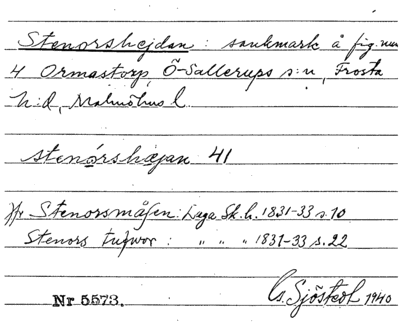 Stenorshejdan: sankmark å fig. nr
4 Ormastorp, Ö-Sallerups s:n, Frosta
h:d, Malmöhus l.
stenórshæjan 41
Jfr Stenorsmåsen: Laga Sk. h. 1831-33 s. 10
Stenors tufvor: " " " 1831-33 s. 22
Nr 5573. G. Sjöstedt 1940